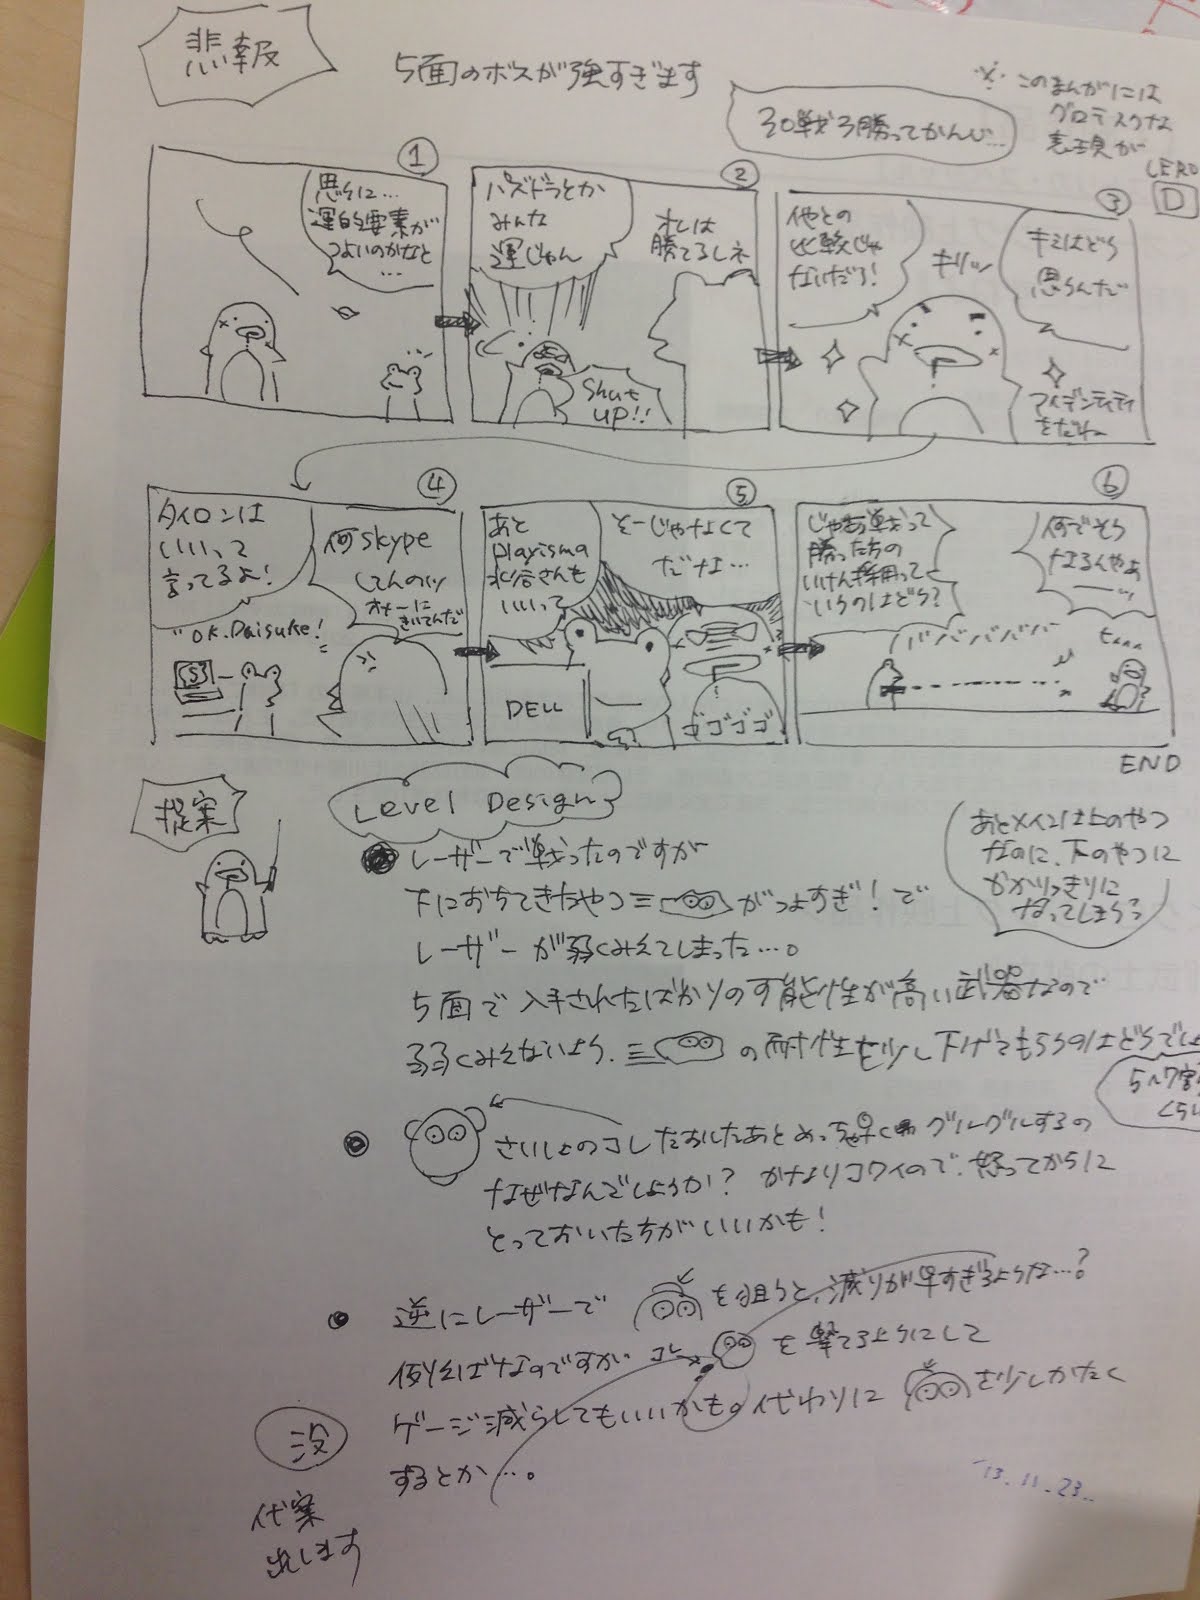 悲報
5面のボスが強すぎます
30戦3勝ってかんじ...
※このまんがには
グロテスクな
表現が
CERO
D
①
思うに...
運的要素が
つよいのかなと
...
②
パズドラとか
みんな
運じゃん
オレは
勝てるしネ
Shut
UP!!
③
他との
比較じゃ
ないだろ!
キリッ
キミはどう
思うんだ
アイデンティティ
をだね
④
タイロンは
いいって
言ってるよ!
何skype
してんのッ
オメーに
きいてんだ
"OK.Daisuke!"
⑤
あと
Playismの
水谷さんも
いいって
そーじゃなくて
だな...
DELL
ゴゴゴゴ
⑥
じゃあ戦って
勝った方の
いけん採用って
いうのはどう?
何でそう
なるんやぁ
ババババババ
END
提案
Level Design
レーザーで戦ったのですが
下におちてきたやつ がつよすぎ!で
レーザーが弱くみえてしまった...。
5面で入手されたばかりの可能性が高い武器なので
弱くみえないよう、 の耐性を少し下げてもらうのはどうでしょ
5〜7割
くらい
あとメインは上のやつ
なのに、下のやつに
かかりっきりに
なってしまう?
さいしょのコレたおしたあとめっちゃ早く グルグルするの
なぜなんでしょうか? かなりコワイので、怒ってからに
とっておいた方がいいかも!
逆にレーザーで を狙うと、減りが早すぎるような...?
例えばなのですが コレ を撃てるようにして
ゲージ減らしてもいいかも。代わりに を少しかたく
するとか...。
没
代案
出します
'13.11.23..